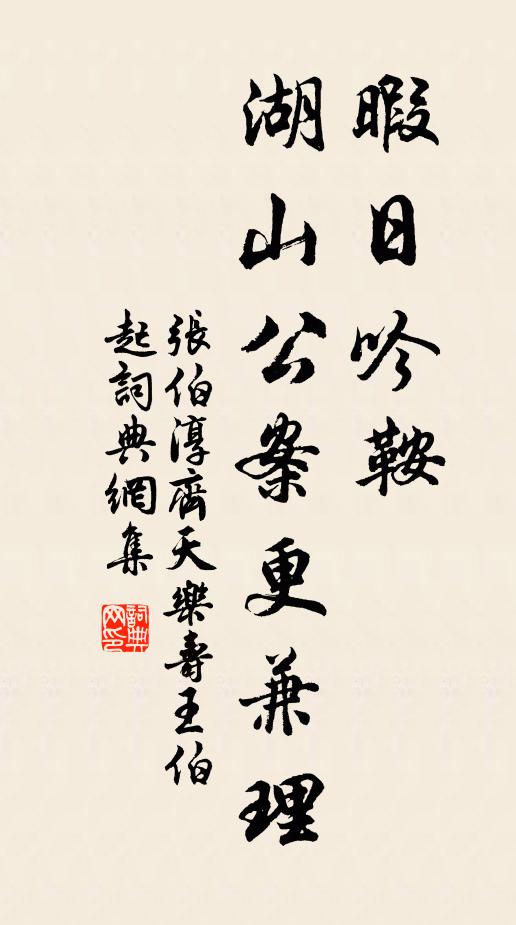 暇日吟鞍
湖山公案更兼理
張伯淳齊天樂壽王伯
起詞典網集
詞典
网印